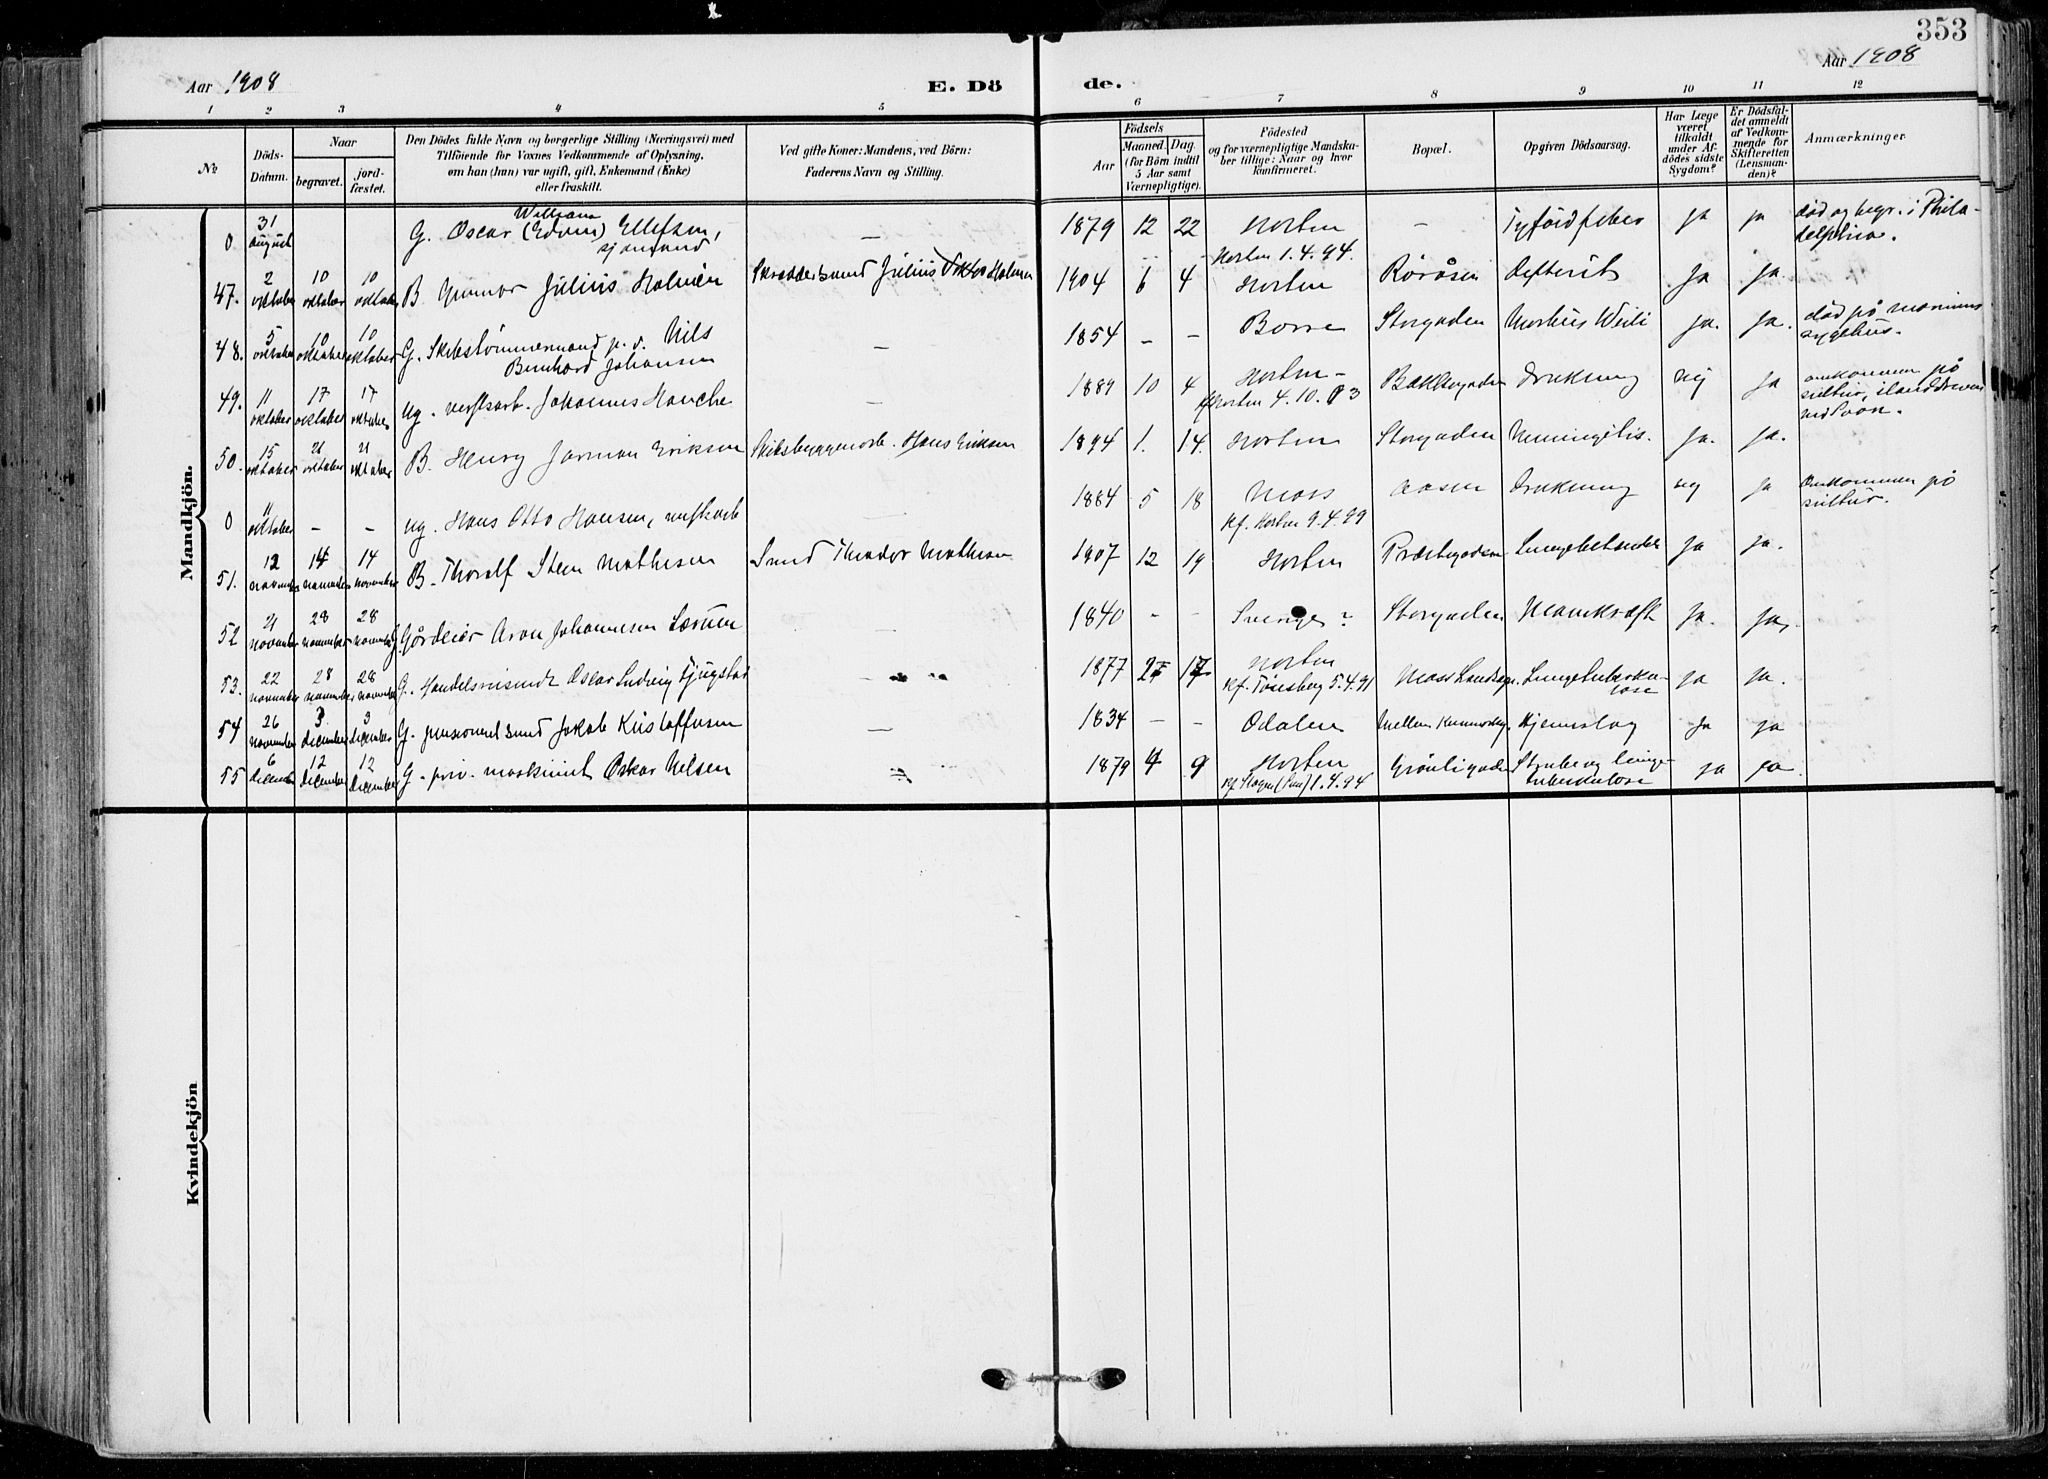 353
Aar 1908
E. Dö
de.
Aar 1908
1 2 3 4 5 6 7 8 9 10 11 12
No
Döds-
Datum.
Naar
begravet.
jord-
fæstet.
Den Dödes fulde Navn og borgerlige Stilling (Næringsvei) med
Tilföiende for Voxnes Vedkommende af Oplysning,
om han (hun) var ugift, gift, Enkemand (Enke)
eller fraskilt.
Ved gifte Koner: Mandens, ved Börn:
Faderens Navn og Stilling.
Födsels
Aar
Maaned. Dag.
(for Börn indtil
5 Aar samt
Værnepligtige).
Födested
og for værnepligtige Mandska-
ber tillige: Naar og hvor
konfirmeret.
Bopæl.
Opgiven Dödsaarsag.
Har Læge
været
tilkaldt
under Af-
dödes sidste
Sygdom?
Er Dödsfal-
det anmeldt
af Vedkom-
mende for
Skifteretten
(Lensman-
den)?
Anmærkninger.
Mandkjön.
0 31 august G. Oscar (Edvin) William Ellefsen, sjømand — 1879 12 22 Horten Horten 1.4.94. — Tyfoidfeber ja ja død og begr. i Phila-
delphia.
47. 2 oktober 10 oktober 10 oktober B Gunnar Julius Holmen Skræddersvend Julius Viktor Holmen 1904 6 4 Horten Røråsen Difterit ja ja.
48. 5 oktober 10 oktober 10 oktober G. Skibstømmermand p. v. Nils
Bernhard Johansen — 1854 — — Borre Storgaden Morbus Weili ja. ja. død på marinens
sygehus.
49. 11 oktober 17 oktober 17 oktober ug. verftsarb. Johannes Hauche — 1889 10 4 Horten— Horten 4.10.03 Bakkegaden drukning nej ja omkommen på
seiltur, ilanddreven
ved
50. 15 oktober 21 oktober 21 oktober B. Henry Jarman Eriksen Skibsbyggerarb. Hans Eriksen 1894 1. 14. Horten Storgaden Meningitis. ja. ja.
0 11 oktober — — ug. Hans Otto Hansen, verftsarb — 1884 5 18 Moss Kf. Horten 9.4.99 Aasen Drukning nej ja Omkommen på
seiltur.
51. 12 november 14 november 14 november B. Thoralf Steen Mathisen Smed Theodor Mathisen 1907 12 19 Horten Præstegaden Lungebetændelse ja ja.
52 21 november 28 november 28 november G. Gårdeier Aron Johannesen — 1840 — — Sverige? Storgaden Mavekræft ja. ja.
53. 22 november 28 november 28 november G. Handelsreisende Oscar Ludvig Fjugstad 1877 2 17 Horten Kf. Tønsberg 5.4.91 Moss Landsogn. Lungetuberku-
lose ja ja.
54 26 november 3 december 3 december G. pensioneret smed Jakob Kristoffersen — 1834 — — Odalen Mellem Hjerneslag ja ja
55 6 december 12 december 12 december G. priv. maskinist Oskar Nilsen — 1879 4 9 Horten Kf. Slagen 1.4.94 Grønligaden Strube og lunge-
tuberkulose ja ja.
Kvindekjön